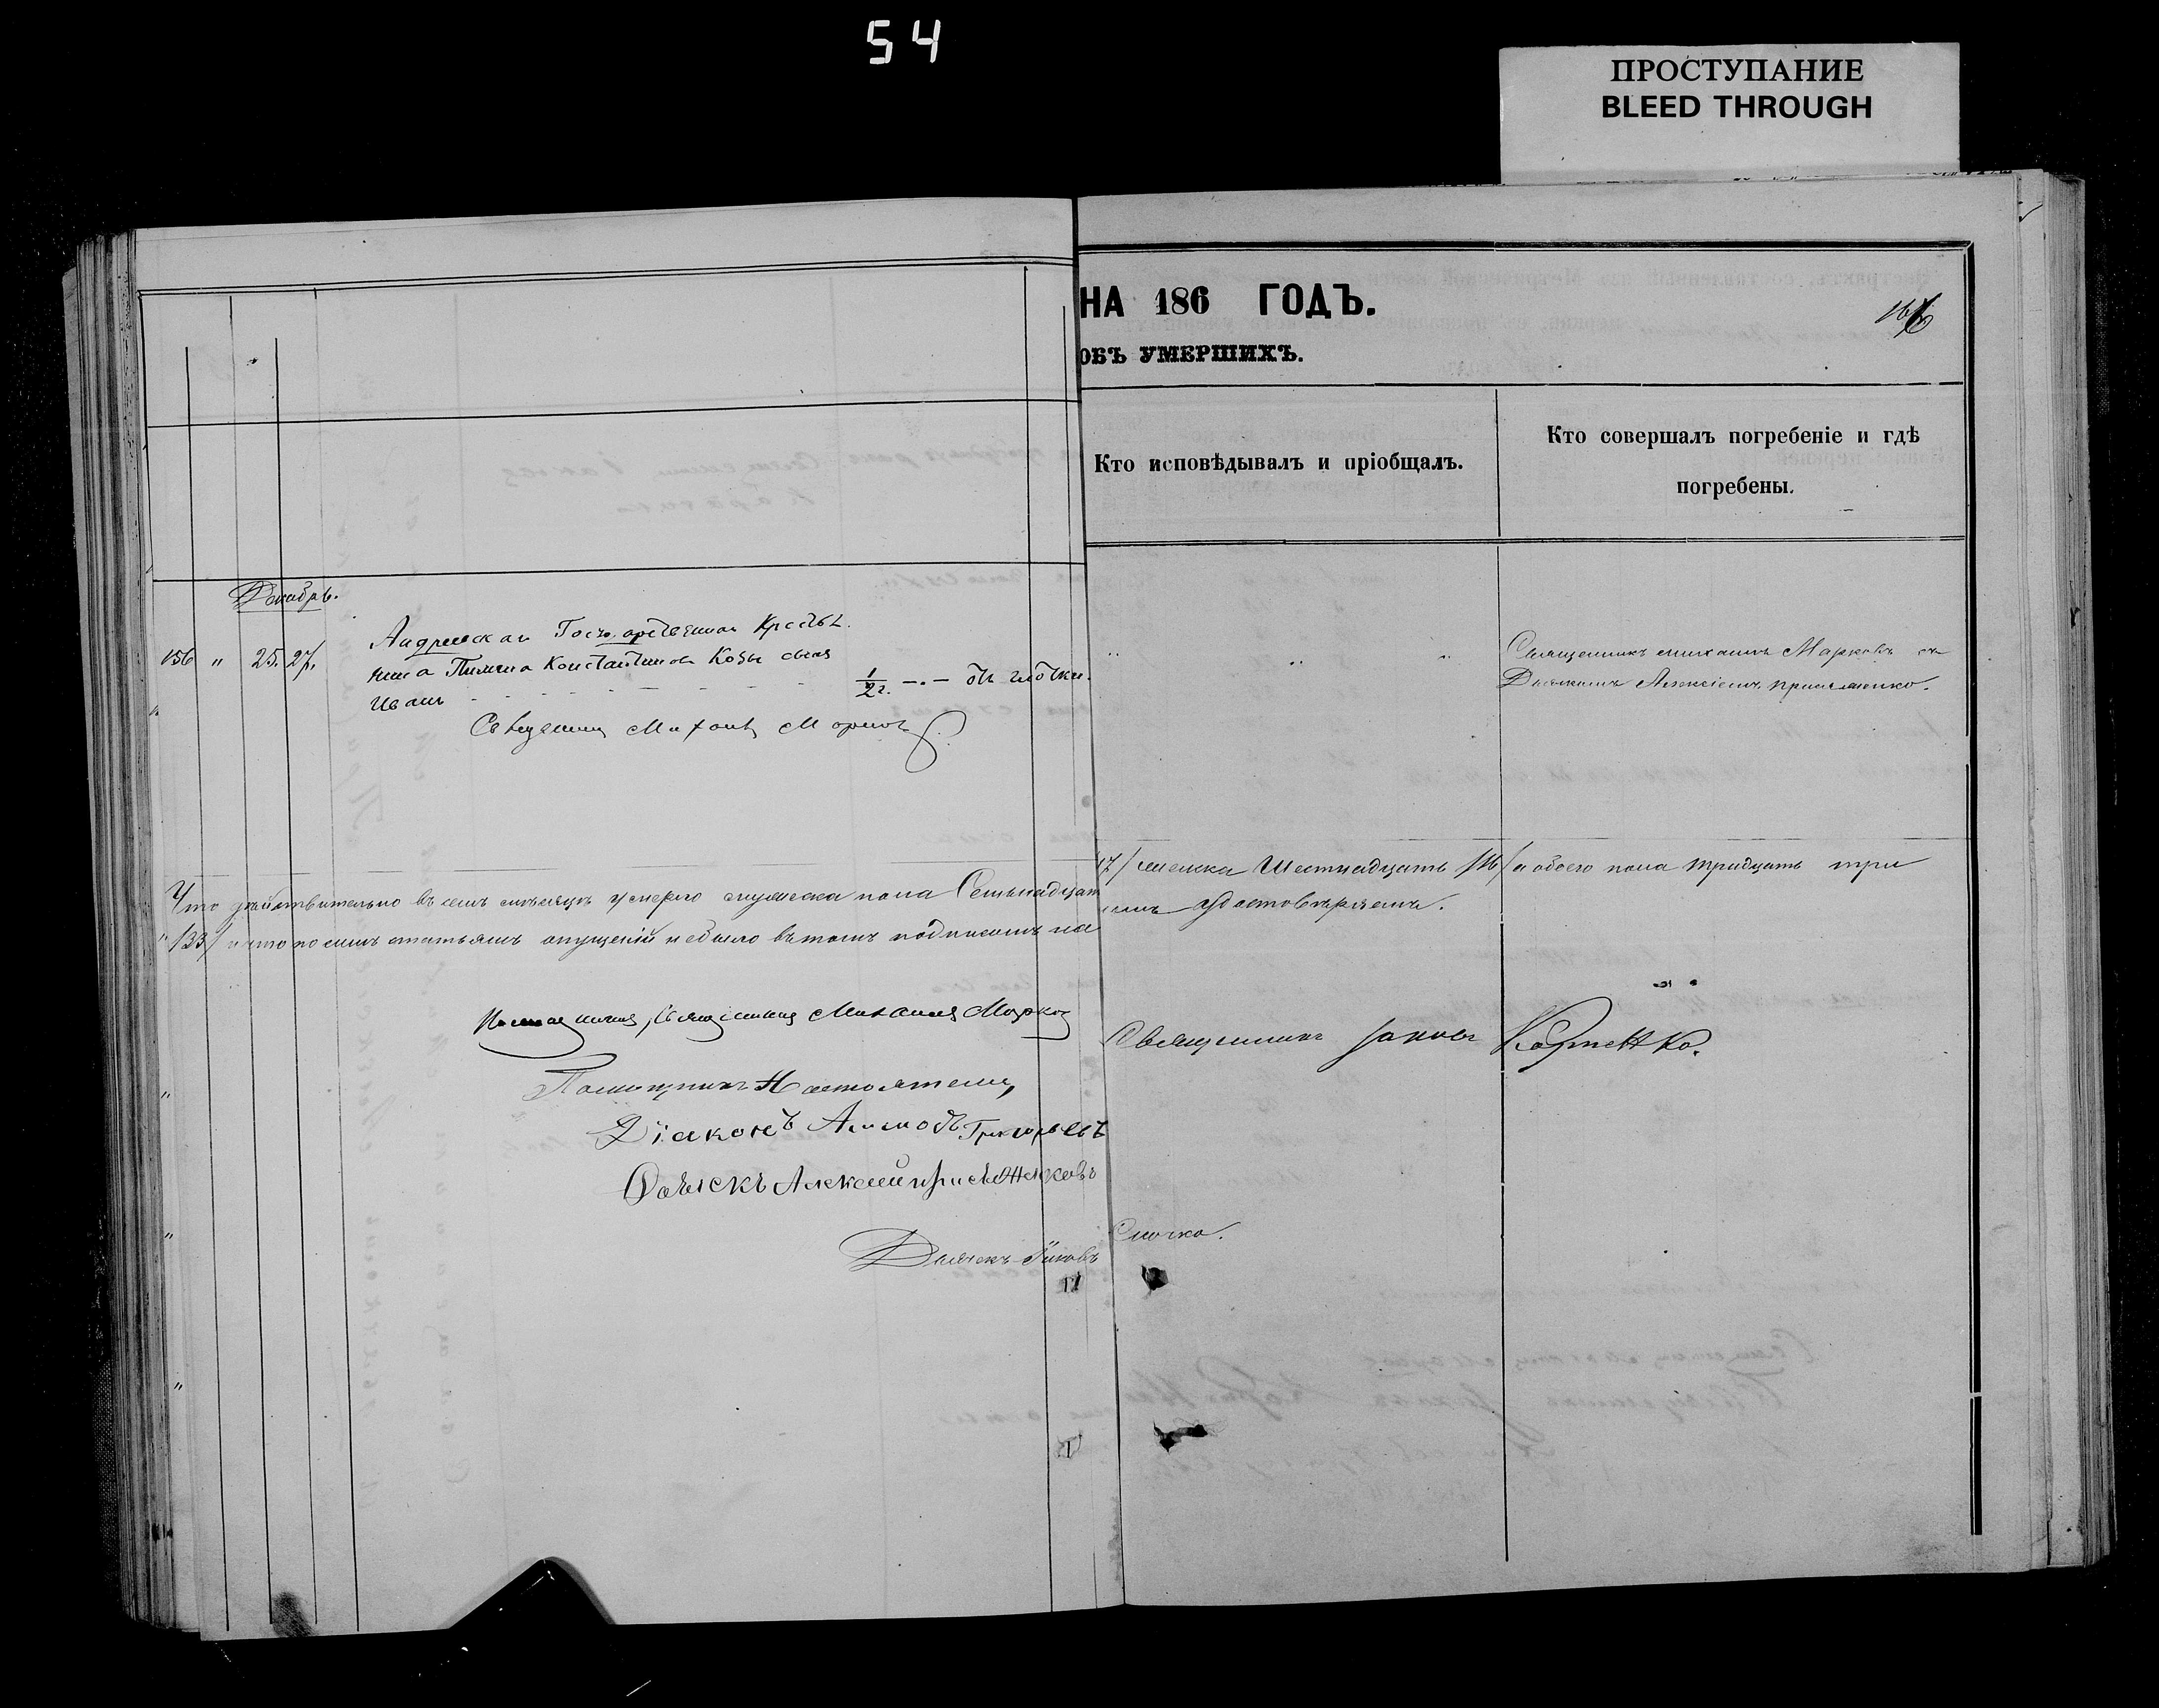 54
ПРОСТУПАНИЕ
BLEED THROUGH
НА 186 ГОДЪ.
ОБЪ УМЕРШИХЪ.
Кто исповѣдывалъ и пріобщалъ.
Кто совершалъ погребеніе и гдѣ
погребены.
Декабрь.
156 " 25. 27.
Крестья
нина Пимена Константинова Козы сынъ
Иванъ
1/2 г. отъ глотки.
Священникъ Михаилъ Марковъ
Священникъ Михаилъ Марковъ съ
Дьячкомъ Алексіемъ
Что дѣйствительно въ семъ мѣсяцѣ умерло мужеска пола Семьнадцать
17/ женска Шестнадцать /16/ а обоего пола тридцать три
/33/ и что по симъ статьямъ опущеній небыло въ томъ подписомъ на
шимъ удостовѣряемъ.
Священникъ Михаилъ Марковъ
Священникъ Іаковъ Карпенко.
Помощникъ Настоятеля,
Діаконъ Григорьевъ
Дьячекъ Алексѣй
Дьячекъ Яковъ Сночко.